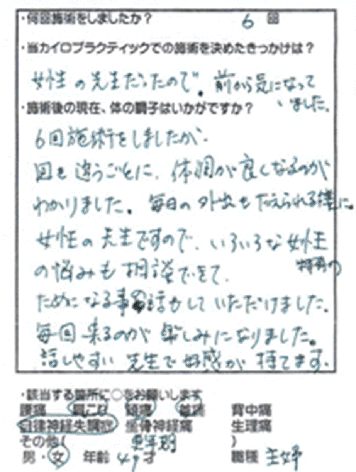 ・何回施術をしましたか？ 6 回
・当カイロプラクティックでの施術を決めたきっかけは？
女性の先生だったので。前から気になって
いました。
・施術後の現在、体の調子はいかがですか？
6回施術をしましたが、
回を追うごとに、体調が良くなるのが
わかりました。毎日の外出も耐えられる様に。
女性の先生ですので、いろいろな女性
特有の
の悩みも相談できて、
ためになる事も話かして いただけました。
毎回来るのが楽しみになりました。
話しやすい先生で好感が持てます。
・該当する箇所に○をお願いします
腰痛 肩こり 頭痛 首痛 背中痛
自律神経失調症 坐骨神経痛 生理痛
その他( 更年期 )
男・女 年齢 49才 職種 主婦